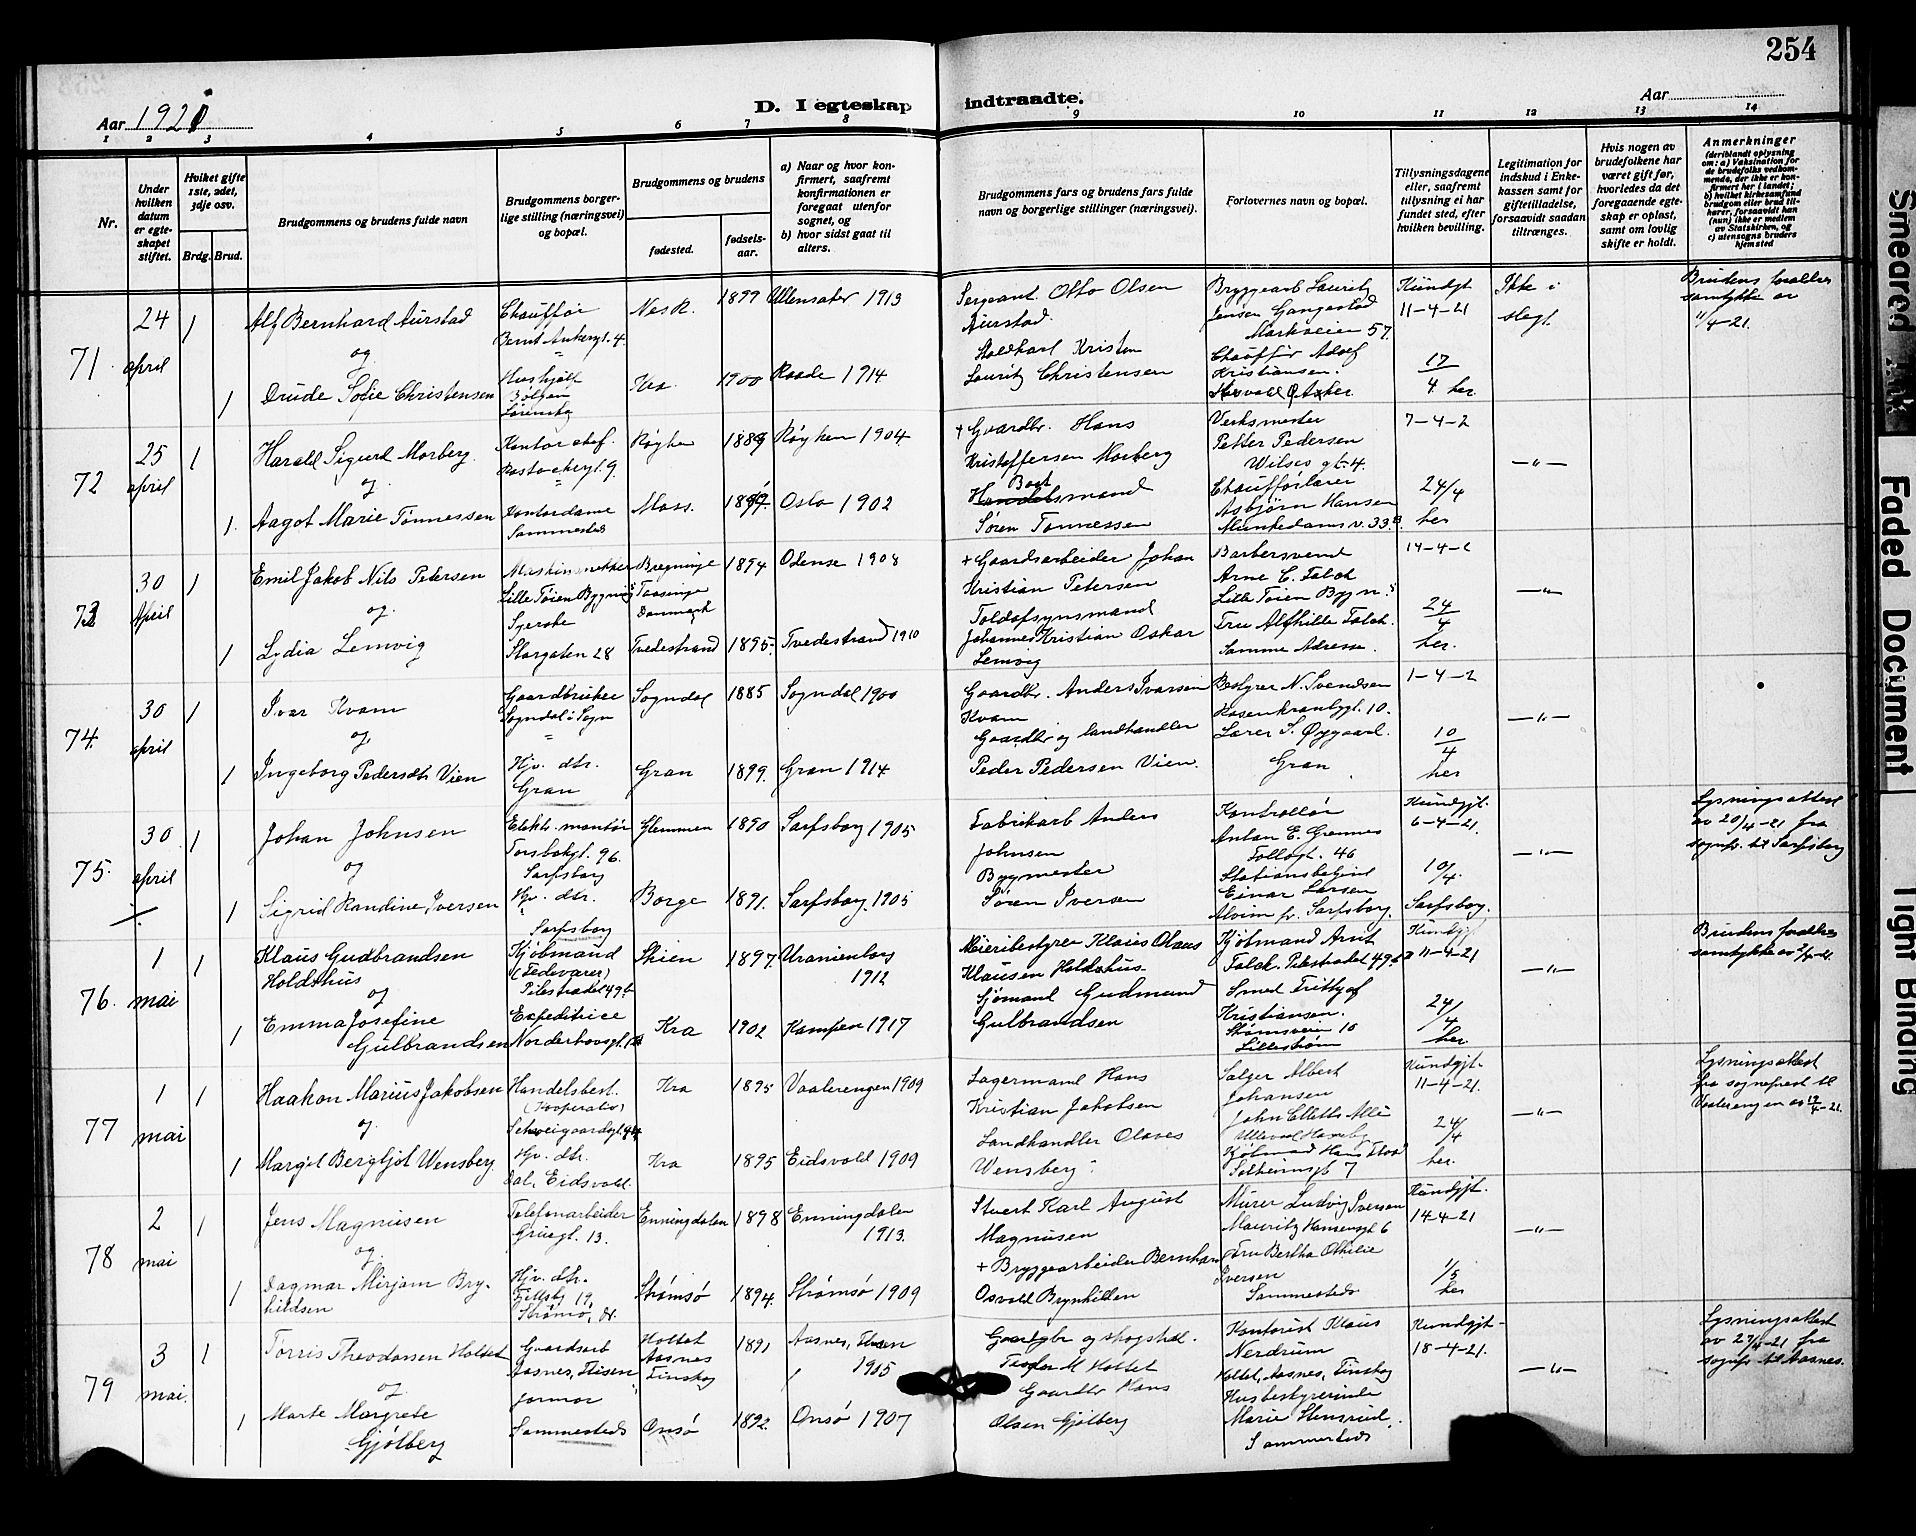 254
Aar 1921
D. I egteskap indtraadte.
Aar
1 2 3 4 5 6 7 8 9 10 11 12 13 14
Nr.
Under hvilken datum er egteskapet stiftet.
Hvilket gifte 1ste, 2det, 3dje osv.
Brdg. Brud.
Brudgommens og brudens fulde navn
Brudgommens borgerlige stilling (næringsvei) og bopæl.
Brudgommens og brudens
fødested. fødselsaar.
a) Naar og hvor konfirmert, saafremt konfirmationen er foregaat utenfor sognet, og
b) hvor sidst gaat til alters.
Brudgommens fars og brudens fars fulde navn og borgerlige stillinger (næringsvei).
Forlovernes navn og bopæl.
Tillysningsdagene eller, saafremt tillysning ei har fundet sted, efter hvilken bevilling.
Legitimation for indskud i Enkekassen samt for giftetilladelse, forsaavidt saadan tiltrænges.
Hvis nogen av brudefolkene har været gift før, hvorledes da det foregaaende egteskap er opløst, samt om lovlig skifte er holdt.
Anmerkninger
71
24 april
1
Alf Bernhard Aurstad
og
1 Drude Sofie Christensen
Chauffør
Bernt Ankersgt. 4.
Hushjælp
Lørenskog
Nes R. 1899 Ullensaker 1913
Kra. 1900 Raade 1914
Sergeant Otto Olsen
Aurstad.
Staldkarl Kristen
Lauritz Christensen
Bryggearb Lauritz
Jensen Gangestad
Markveien 57.
Chauffør Adolf
Kristiansen.
Kundgt
11-4-21
17/4 her.
Ikke i
slegt.
Brudens forældres
samtykke av
11/4-21.
72
25 april
1
Harald Sigurd Morberg
og
1. Aagot Marie Tønnessen
Kontorchef.
Kontordame
Sammesteds
Røyken 1889 Røyken 1904
Moss. Oslo 1902
+ Gaardbr. Hans
Kristoffersen Morberg
Handelsmand
Søren Tønnessen
Verksmester
Petter Pedersen
Wilses gt. 4.
Chaufførlærer
Asbjørn Hansen
Munkedamsv. 33 B
7-4-2
24/4
her
—"—
73
30 April
1
Emil Jakob Nils Petersen
og
1 Lydia Lemvig
Maskinsnekker
Lille Tøien Bygning
Storgaten 28
Bregninge
Taasinge
Danmark
1894 Odense 1908
Tvedestrand 1895 Tvedestrand 1910
+ Gaardsarbeider Johan
Kristian Petersen
Toldopsynsmand
Johannes Kristian Oskar
Lemvig
Barbersvend
Arne C. Falck
Lille Tøien Bygn.
Fru Alfhilde Falck.
Samme Adresse.
14-4-2
24/4
her.
—"—
74.
30 april
1
Ivar Kvam
og
1 Ingeborg Pedersdtr Vien
Gaardbruker
Sogndal i Sogn
Hjv. dtr.
Gran
Sogndal 1885 Sogndal 1900
Gran 1899. Gran 1914
Gaardbr. Anders Ivarsen
Kvam
Gaardbr og landhandler
Peder Pedersen Vien.
Bestyrer N. Svendsen
Rosenkranzgt. 10.
Lærer S. Øygaard.
Gran
1-4-2
10/4
her
—"—
75.
30 april
1
Johan Johnsen
og
1 Sigrid Randine Iversen
Elektr. montør
Torsbekgt. 96.
Sarpsborg
Hjv. dtr.
Sarpsborg
Glemmen 1890 Sarpsborg 1905
Borge 1891. Sarpsborg 1905
Fabrikarb Anders
Johnsen
Bygmester
Søren Iversen
Kontrollør
Anton E. Grønnes
Tollbgt. 46
Stationsbetjent
Einar Larsen
Alvim pr. Sarpsborg.
Kundgjt.
6-4-21.
10/4.
Sarpsborg.
—"—
Lysningsattest
av 20/4-21 fra
sognpr. til Sarpsborg
76.
1 mai
1
Klaus Gudbrandsen
Holdshus
og
1 Emma Josefine
Gulbrandsen
Kjøbmand
(Fedevarer)
Pilestrædet 49 b
Expeditrice
Norderhovsgt.
Skien 1897. Uranienborg
1912
Kra 1902 Kampen 1917
Meieribestyrer Klaus Olaus
Klausen Holdshus
Sjømand Gudmund
Gulbrandsen
Kjøbmand Arnt
Falck. Pilestrædet 49 b
Smed Frithjof
Kristiansen.
Strømsveien 10
Lillestrøm
Kundgj
11-4-21
24/4
her.
—"—
Brudens forældres
samtykke av
77
1 mai
1
Haakon Marius Jakobsen
og.
1 Margit Bergljot Wensberg.
Handelsbest.
(Kooperativ)
Schweigaardsgt.
Hjv. dtr.
Dal, Eidsvold.
Kra 1895 Vaalerengen 1909
Kra 1895 Eidsvold 1909
Lagermand Hans
Kristian Jakobsen
Landhandler Olaves
Wensberg.
Sælger Albert
Johansen
John Colletts Allé
Ullevaal Haveby
Kjøbmand Hans
Solheimsgt 7
Kundgjt.
11-4-21.
24/4
her.
—"—
Lysningsattest
fra sogneprest til
Vaalerengen av 19/4-21.
78
2 mai
1
Jens Magnusen
og
1 Dagmar Mirjam Bry-
hildsen
Telefonarbeider
Grüegt. 13.
Hjv. dtr.
Strømsø, D.
Enningdalen 1898 Enningdalen
1913.
Strømsø 1894. Strømsø 1909
Stuert Karl August
Magnusen
+ Bryggearbeider Bernhard
Osvald Brynhildsen
Murer Ludvig Iversen
Mauritz Hansensgt 6
Fru Bertha Othilie
Iversen
Sammesteds
Kundgjt.
14-4-21
1/5
her
—"—
79
3 mai.
1
Torris Theodorsen Holtet
og
1 Marte Margrete
Gjølberg
Gaardsarb
Jormor
Sammesteds
Holtet
Aasnes
Finskog
1891 Aasnes,
1905
Onsø 1892. Onsø 1907
M Holtet
Gaardbr Hans
Olsen Gjølberg
Kontorist Klaus
Nerdrum
Holtet, Aasnes, Finskog
Husbestyrerinde
Marie Stensrud.
Sammesteds
Kundgjt.
18-4-21.
—"—
Lysningsattest
av 27/4-21 fra
sognpr. til Aasnes.
Smeared Ink
Faded Document
Tight Binding